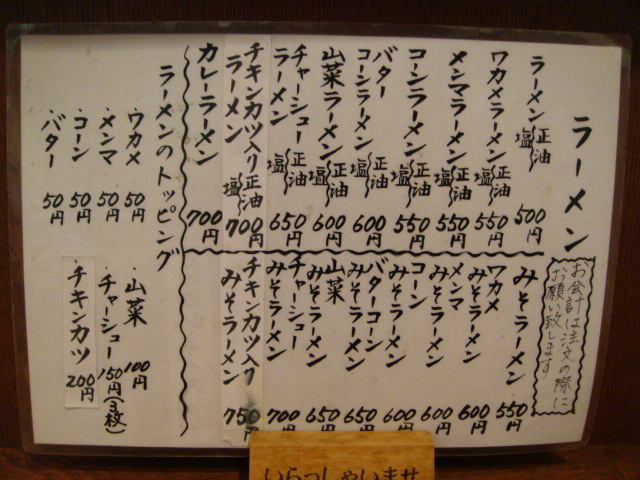 ラーメン
お会計は注文の際に
お願い致します
ラーメン 正油 塩 500円
ワカメラーメン 正油 塩 550円
メンマラーメン 正油 塩 550円
コーンラーメン 正油 塩 550円
バター
コーンラーメン 正油 塩 600円
山菜ラーメン 正油 塩 600円
チャーシュー
ラーメン 正油 塩 650円
チキンカツ入り
ラーメン 正油 塩 700円
カレーラーメン 700円
みそラーメン 550円
ワカメ
みそラーメン 600円
メンマ
みそラーメン 600円
コーン
みそラーメン 600円
バターコーン
みそラーメン 650円
山菜
みそラーメン 650円
チャーシュー
みそラーメン 700円
チキンカツ入り
みそラーメン 750円
ラーメンのトッピング
・ワカメ 50円
・メンマ 50円
・コーン 50円
・バター 50円
・山菜 100円
・チャーシュー 150円(3枚)
・チキンカツ 200円
いらっしゃいませ